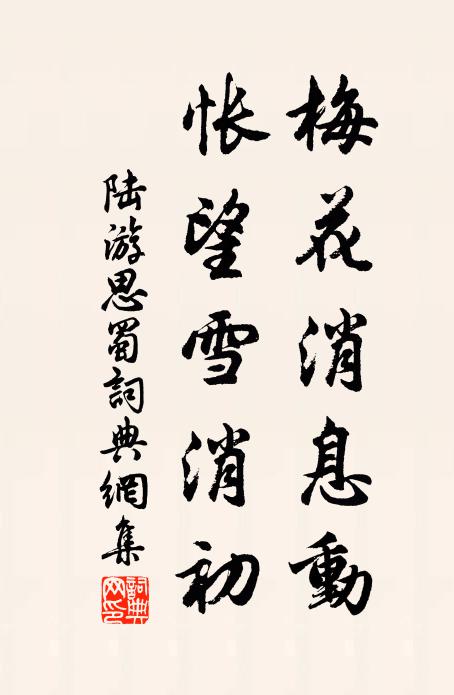 梅花消息動
悵望雪消初
陸游思蜀詞典網集
詞典網印